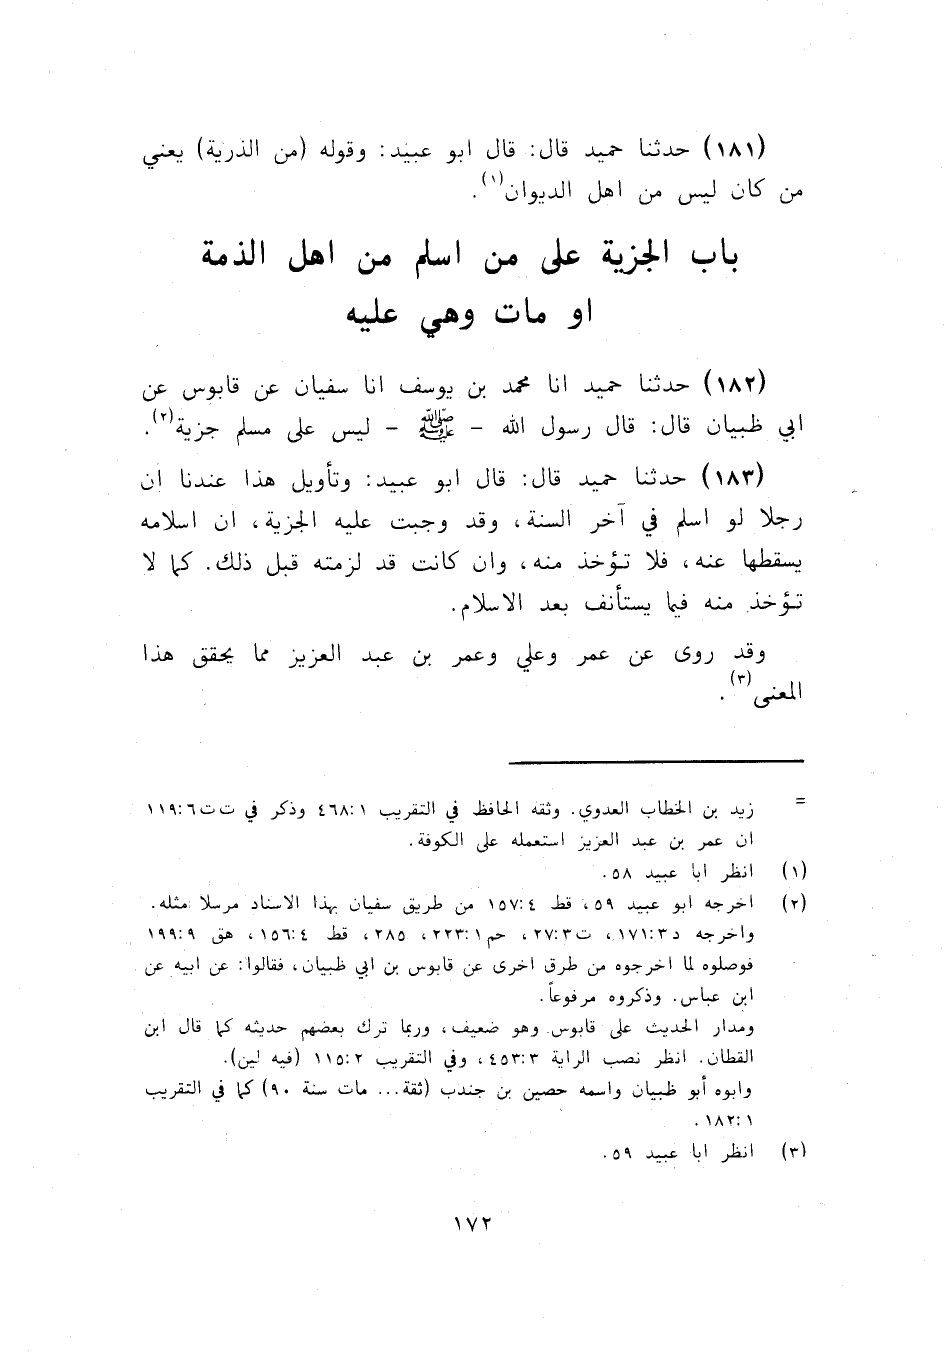 (١٨١) حدثنا حميد قال: قال ابو عبيد: وقوله (من الذرية) يعني
من كان ليس من اهل الديوان(١).
باب الجزية على من اسلم من اهل الذمة
او مات وهي عليه
(١٨٢) حدثنا حميد انا محمد بن يوسف انا سفيان عن قابوس عن
ابي ظبيان قال: قال رسول الله - ﷺ - ليس على مسلم جزية(٢).
(١٨٣) حدثنا حميد قال: قال ابو عبيد: وتأويل هذا عندنا ان
رجلا لو اسلم في آخر السنة، وقد وجبت عليه الجزية، ان اسلامه
يسقطها عنه، فلا تؤخذ منه، وان كانت قد لزمته قبل ذلك. كما لا
تؤخذ منه فيما يستأنف بعد الاسلام.
وقد روى عن عمر وعلي وعمر بن عبد العزيز مما يحقق هذا
المعنى(٣).
= زيد بن الخطاب العدوي. وثقه الحافظ في التقريب ٤٦٨:١ وذكر في ت ت ١١٩:٦
ان عمر بن عبد العزيز استعمله على الكوفة.
(١) انظر ابا عبيد ٥٨.
(٢) اخرجه ابو عبيد ٥٩، قط ١٥٧:٤ من طريق سفيان بهذا الاسناد مرسلا مثله.
واخرجه د ١٧١:٣، ت ٢٧:٣، حم ٢٢٣:١، ٢٨٥، قط ١٥٦:٤، هق ١٩٩:٩
فوصلوه لما اخرجوه من طرق اخرى عن قابوس بن ابي ظبيان، فقالوا: عن ابيه عن
ابن عباس. وذكروه مرفوعاً.
ومدار الحديث على قابوس وهو ضعيف، وربما ترك بعضهم حديثه كما قال ابن
القطان. انظر نصب الراية ٤٥٣:٣، وفي التقريب ١١٥:٢ (فيه لين).
وابوه أبو ظبيان واسمه حصين بن جندب (ثقة... مات سنة ٩٠) كما في التقريب
١٨٢:١.
(٣) انظر ابا عبيد ٥٩.
١٧٢